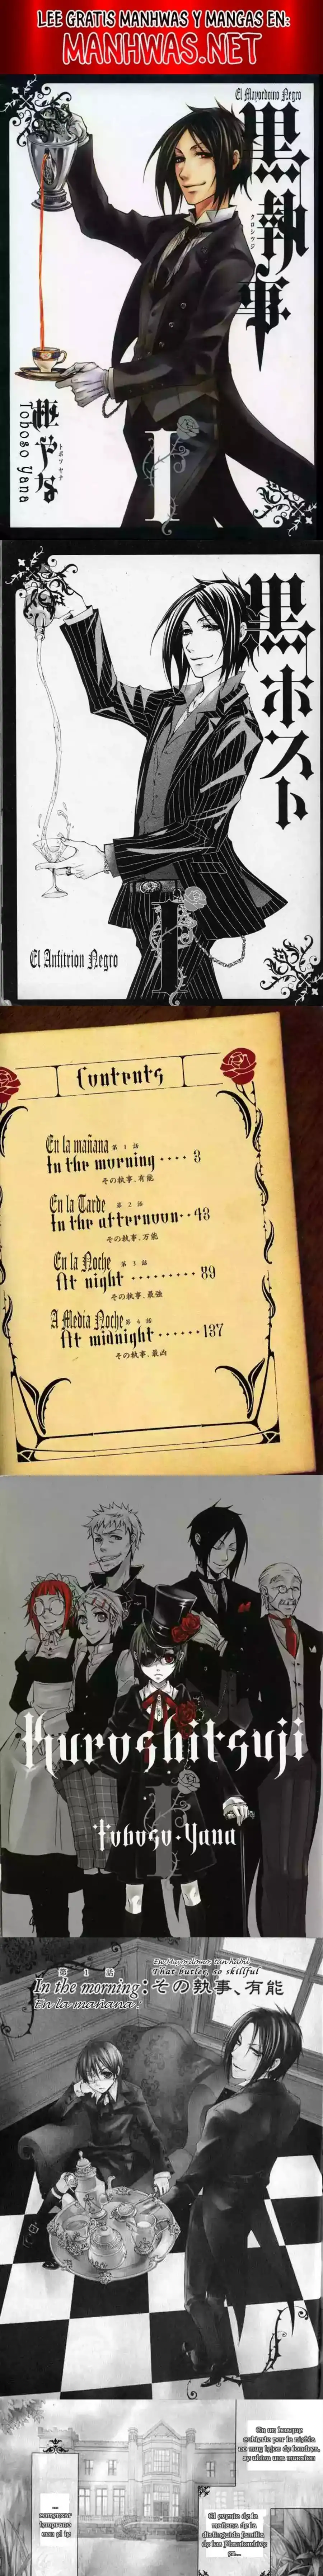 LEE GRATIS MANHWAS Y MANGAS EN:
MANHWAS.NET
El Mayordomo Negro
黒執事
クロシツジ
枢やな
トボソ ヤナ
Toboso Yana
I
黒ホスト
El Anfitrion Negro
I
Contents
En la mañana 第1話
In the morning ···· 3
その執事、有能
En la Tarde 第2話
In the afternoon ·· 43
その執事、万能
En la Noche 第3話
At night ········· 89
その執事、最強
A Media Noche 第4話
At midnight ······ 137
その執事、最凶
Kuroshitsuji
I
Toboso·Yana
第1話
That butler, so skillful
In the morning: その執事、有能
En la mañana:
En un bosque
cubierto por la niebla
no muy lejos de londres,
se ubica una mansion
El evento de la
mañana de la
distinguida familia
de los Phantomhive
es...
...
comenzar
temprano
con el te